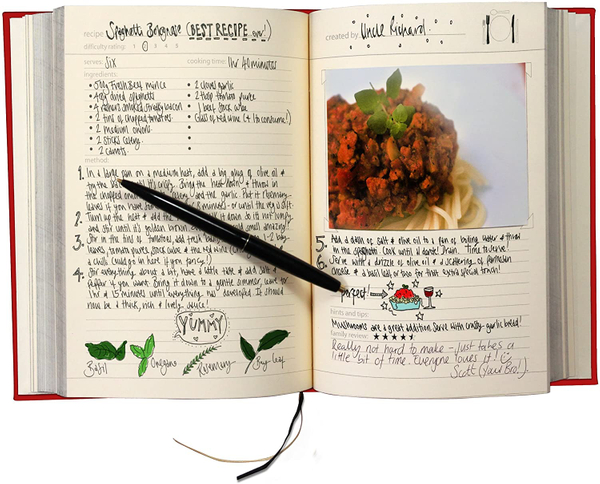 recipe Spaghetti Bolognase (BEST RECIPE ever!)
difficulty rating: 1 2 3 4 5
serves: Six
cooking time: 1hr 40 minutes
ingredients:
• 500g Fresh Beef mince
• dried spaghetti
• smoked streaky bacon
• 2 tins of chopped tomatoes
• 2 medium onions
• 2 sticks celery
• 2 carrots
• 2 cloves garlic
• 2 tbsp tomato puree
• 1 beef stock cube
• Glass of red wine (+ 1 to consume!)
method:
1. In a large pan on a medium heat, add a big glug of olive oil &
fry the bacon until it's crispy. Bring the heat down & throw in
the chopped onions and the garlic. Put in rosemary
leaves if you have some for 8 minutes - or until the veg is soft.
2. Turn up the heat & add the break it down so it's not lumpy
and stir until it's golden brown. small amazing!
3. Stir in the tins of tomatoes, add fresh basil 1-2 bay
leaves, tomato puree, stock cube & the red wine
a chilli could go in here if you fancy!)
4. Stir everything about a bit, have a little taste & add salt &
pepper if you want. Bring it down to a gentle simmer, leave for
1hr & 15 minutes until everything has developed. It should
now be a thick, rich & lovely sauce!
YUMMY
Basil
Oregano
Rosemary
Bay-leaf
created by: Uncle Richard.
5. Add a dash of salt & olive oil to a pan of boiling water & throw
in the spaghetti. Cook until al dante! Drain. Time to serve!
6. Serve with a drizzle of olive oil & a scattering of parmesan
cheese & a basil leaf or two for that extra special touch!
perfect!
hints and tips:
Mushrooms are a great addition. Serve with crusty garlic bread!
family review: ★★★★½
Really not hard to make - just takes a
little bit of time. Everyone loves it!
Scott (Your Bro!).